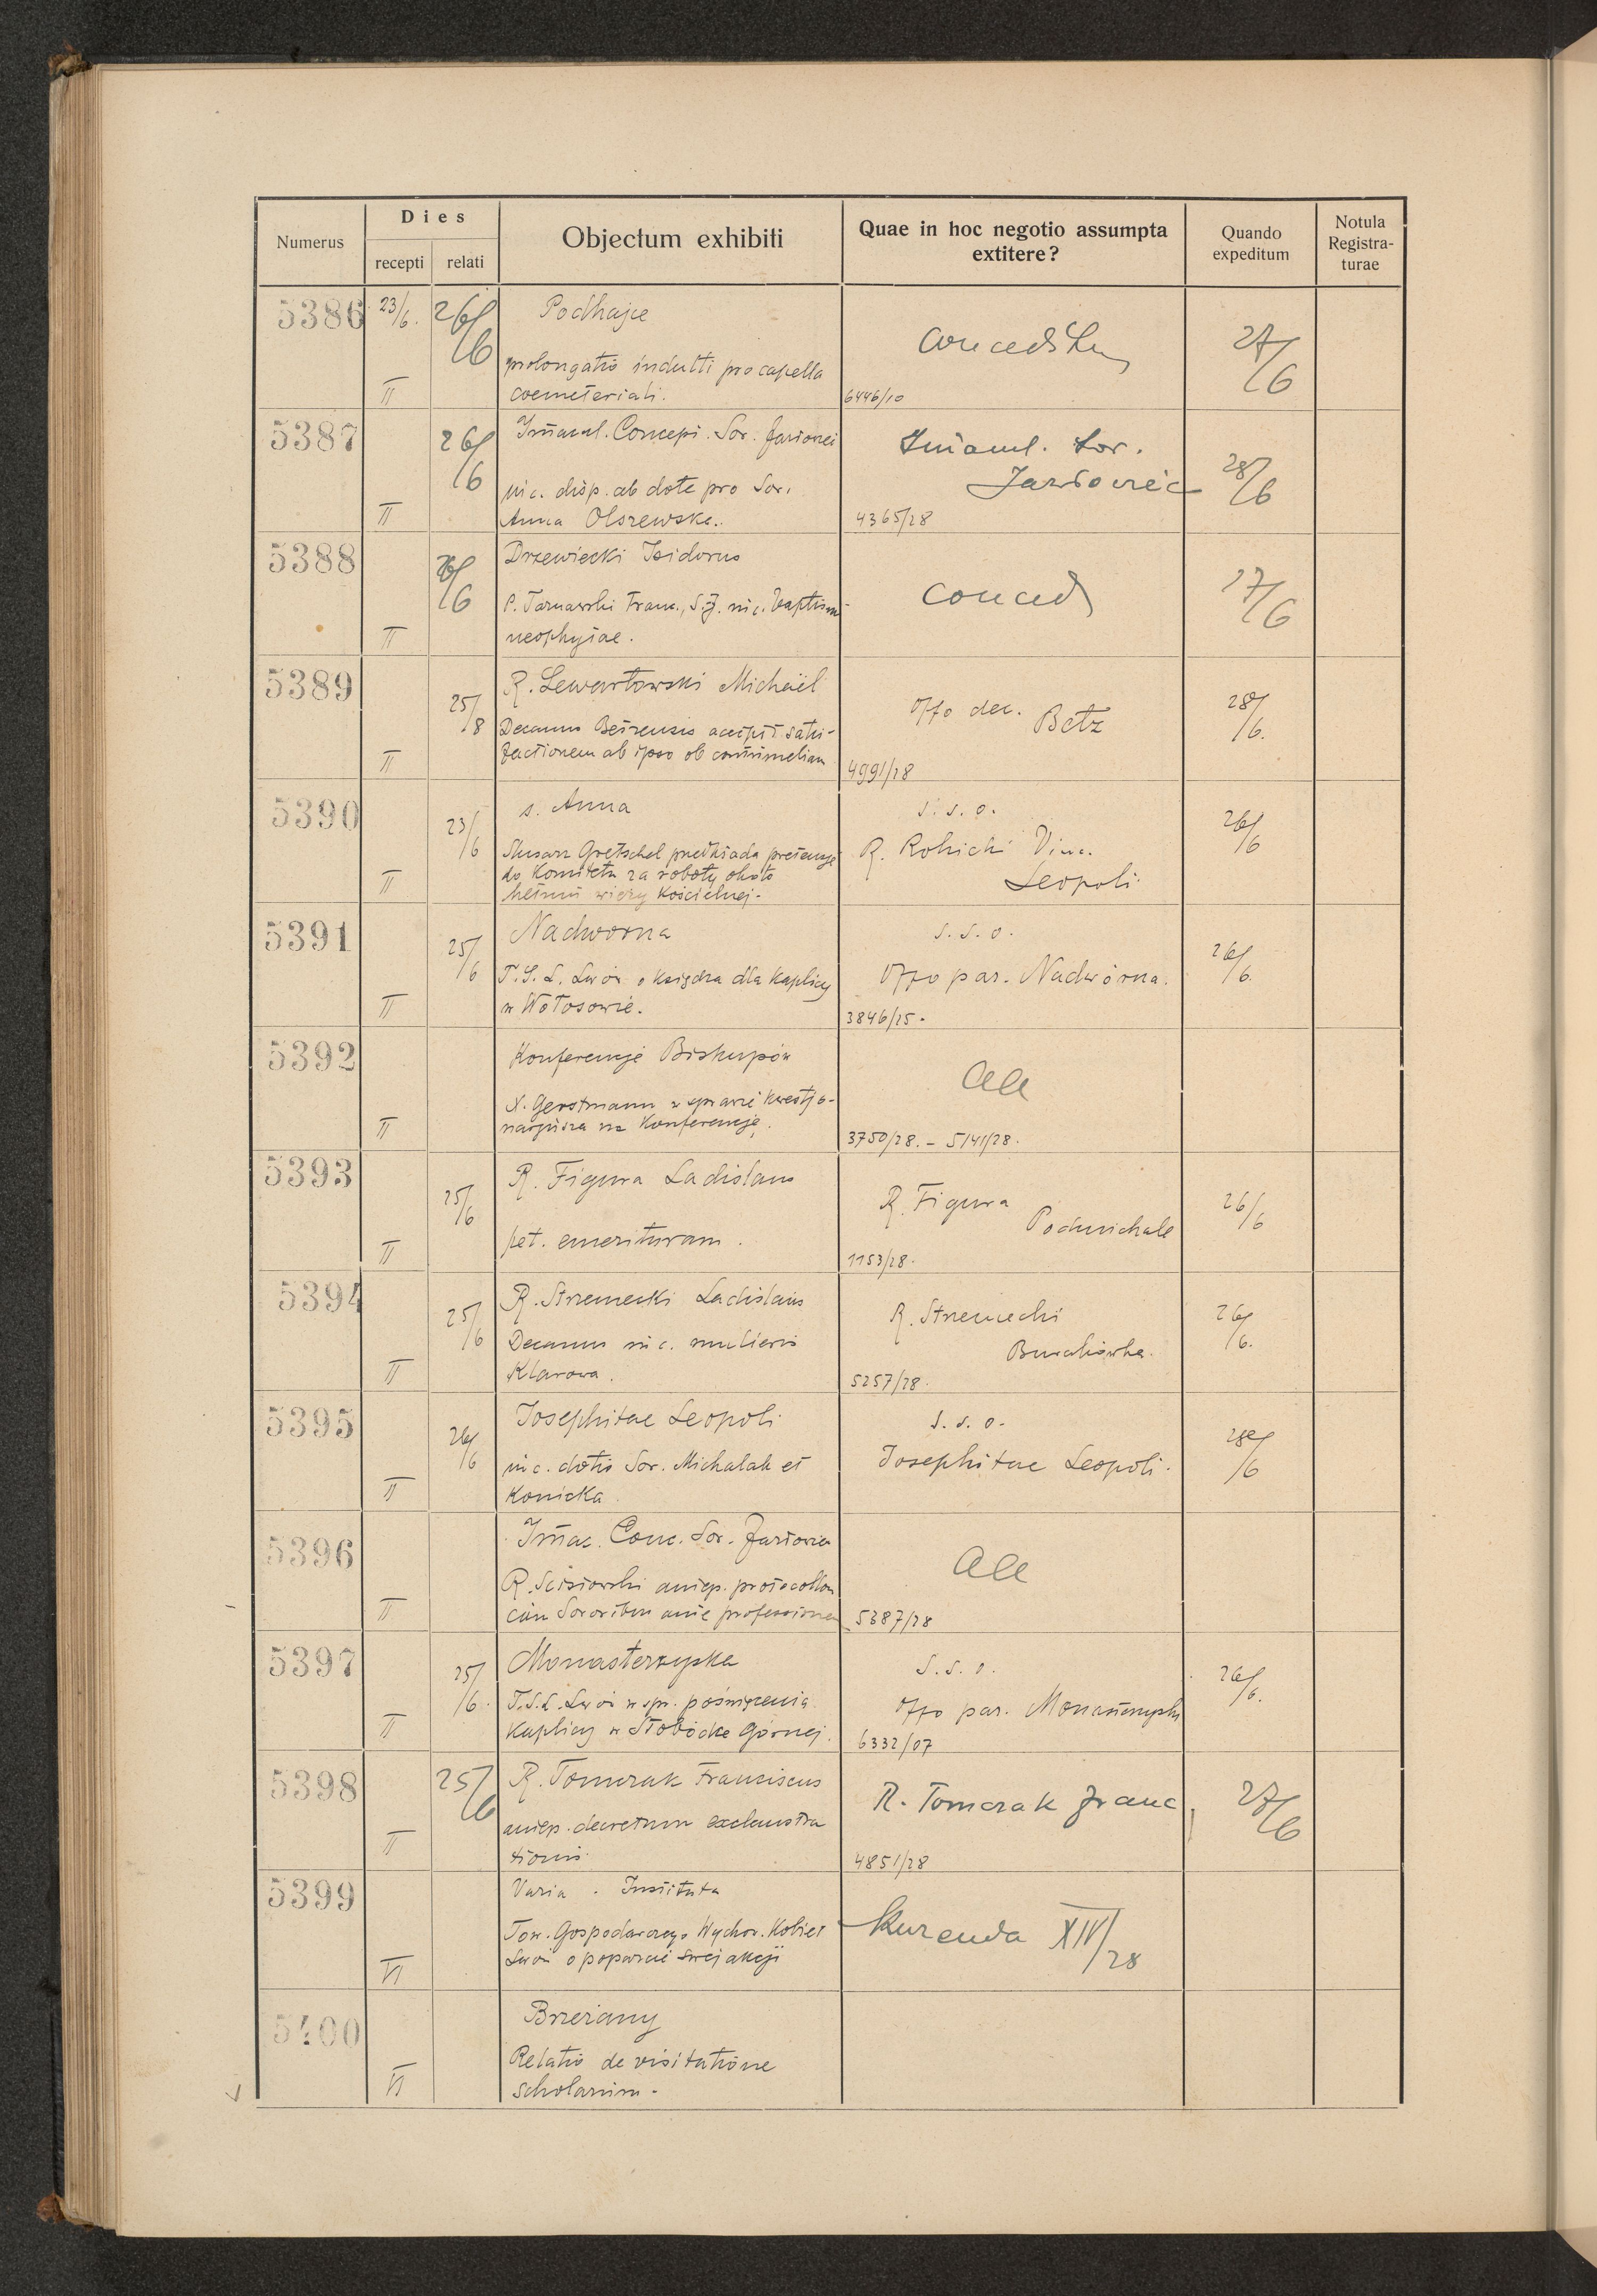 Numerus
Dies
recepti relati
Objectum exhibiti
Quae in hoc negotio assumpta
extitere?
Quando
expeditum
Notula
Registra-
turae
5386 23/6. 26/6 Podhajce
prolongatio indulti pro capella
II coemeteriali.
6446/10
27/6
5387 26/6 Immacul. Concept. Sor.
nic. disp. ab dote pro Sor.
II Anna Olszewska.
Immacul. Sor.
Jazłowiec
4365/28
28/6
5388 26/6 Drzewiecki Isidorus
P. Tarnawski Franc., S.J. nic. baptism
II neophytae.
conced
27/6
5389 25/8 R. Lewartowski Michaël
Decanus accipit satis-
II factionem ab ipso ob contumeliam
Offo dec. Bełz
4991/28
28/6.
5390 23/6 s. Anna
Ślusarz Gretschel przedkłada pretensję
do Komitetu za roboty około
II hełmu wieży kościelnej.
s. s. o.
R. Rokicki Vinc.
Leopoli
26/6
5391 25/6 Nadworna
T.S.L. Lwów o księdza dla kaplicy
II w Wołosowie.
s. s. o.
Offo par. Nadwórna.
3846/25.
26/6.
5392 Konferencje Biskupów
X. Gerstmann w sprawie kwestjo-
II narjusza na Konferencję.
aa
3750/28. – 5141/28.
5393 25/6 R. Figura Ladislaus
II pet. emerituram.
R. Figura
Podmichale
1153/28.
26/6
5394 25/6 R. Strzemecki Ladislaus
Decanus nic. mulieris
II Klarowa.
R. Strzemecki
Burakówka.
5257/28.
26/6.
5395 26/6 Josephitae Leopoli
nic. dotis Sor. Michalak et
II Konicka
s. s. o.
Josephitae Leopoli.
28/6
5396 Immac. Conc. Sor.
R. Ścisłowski protocollon
II cum Sororibus ante professionem
aa
5387/28
5397 25/6. Monasterzyska
T.S.L. Lwów w spr. poświęcenia
II Kaplicy w Słobódce Górnej.
s. s. o.
Offo par.
6332/07
26/6.
5398 25/6 R. Tomczak Franciscus
decretum exclaustra
II tionis
R. Tomczak Franc
4851/28
27/6
5399 Varia . Instituta
Tow. Gospodarczego Wychow. Kobiet
VI Lwów o poparcie swej akcji
Kurenda XIV/28
5400 Brzeżany
Relatio de visitatione
VI scholarum.